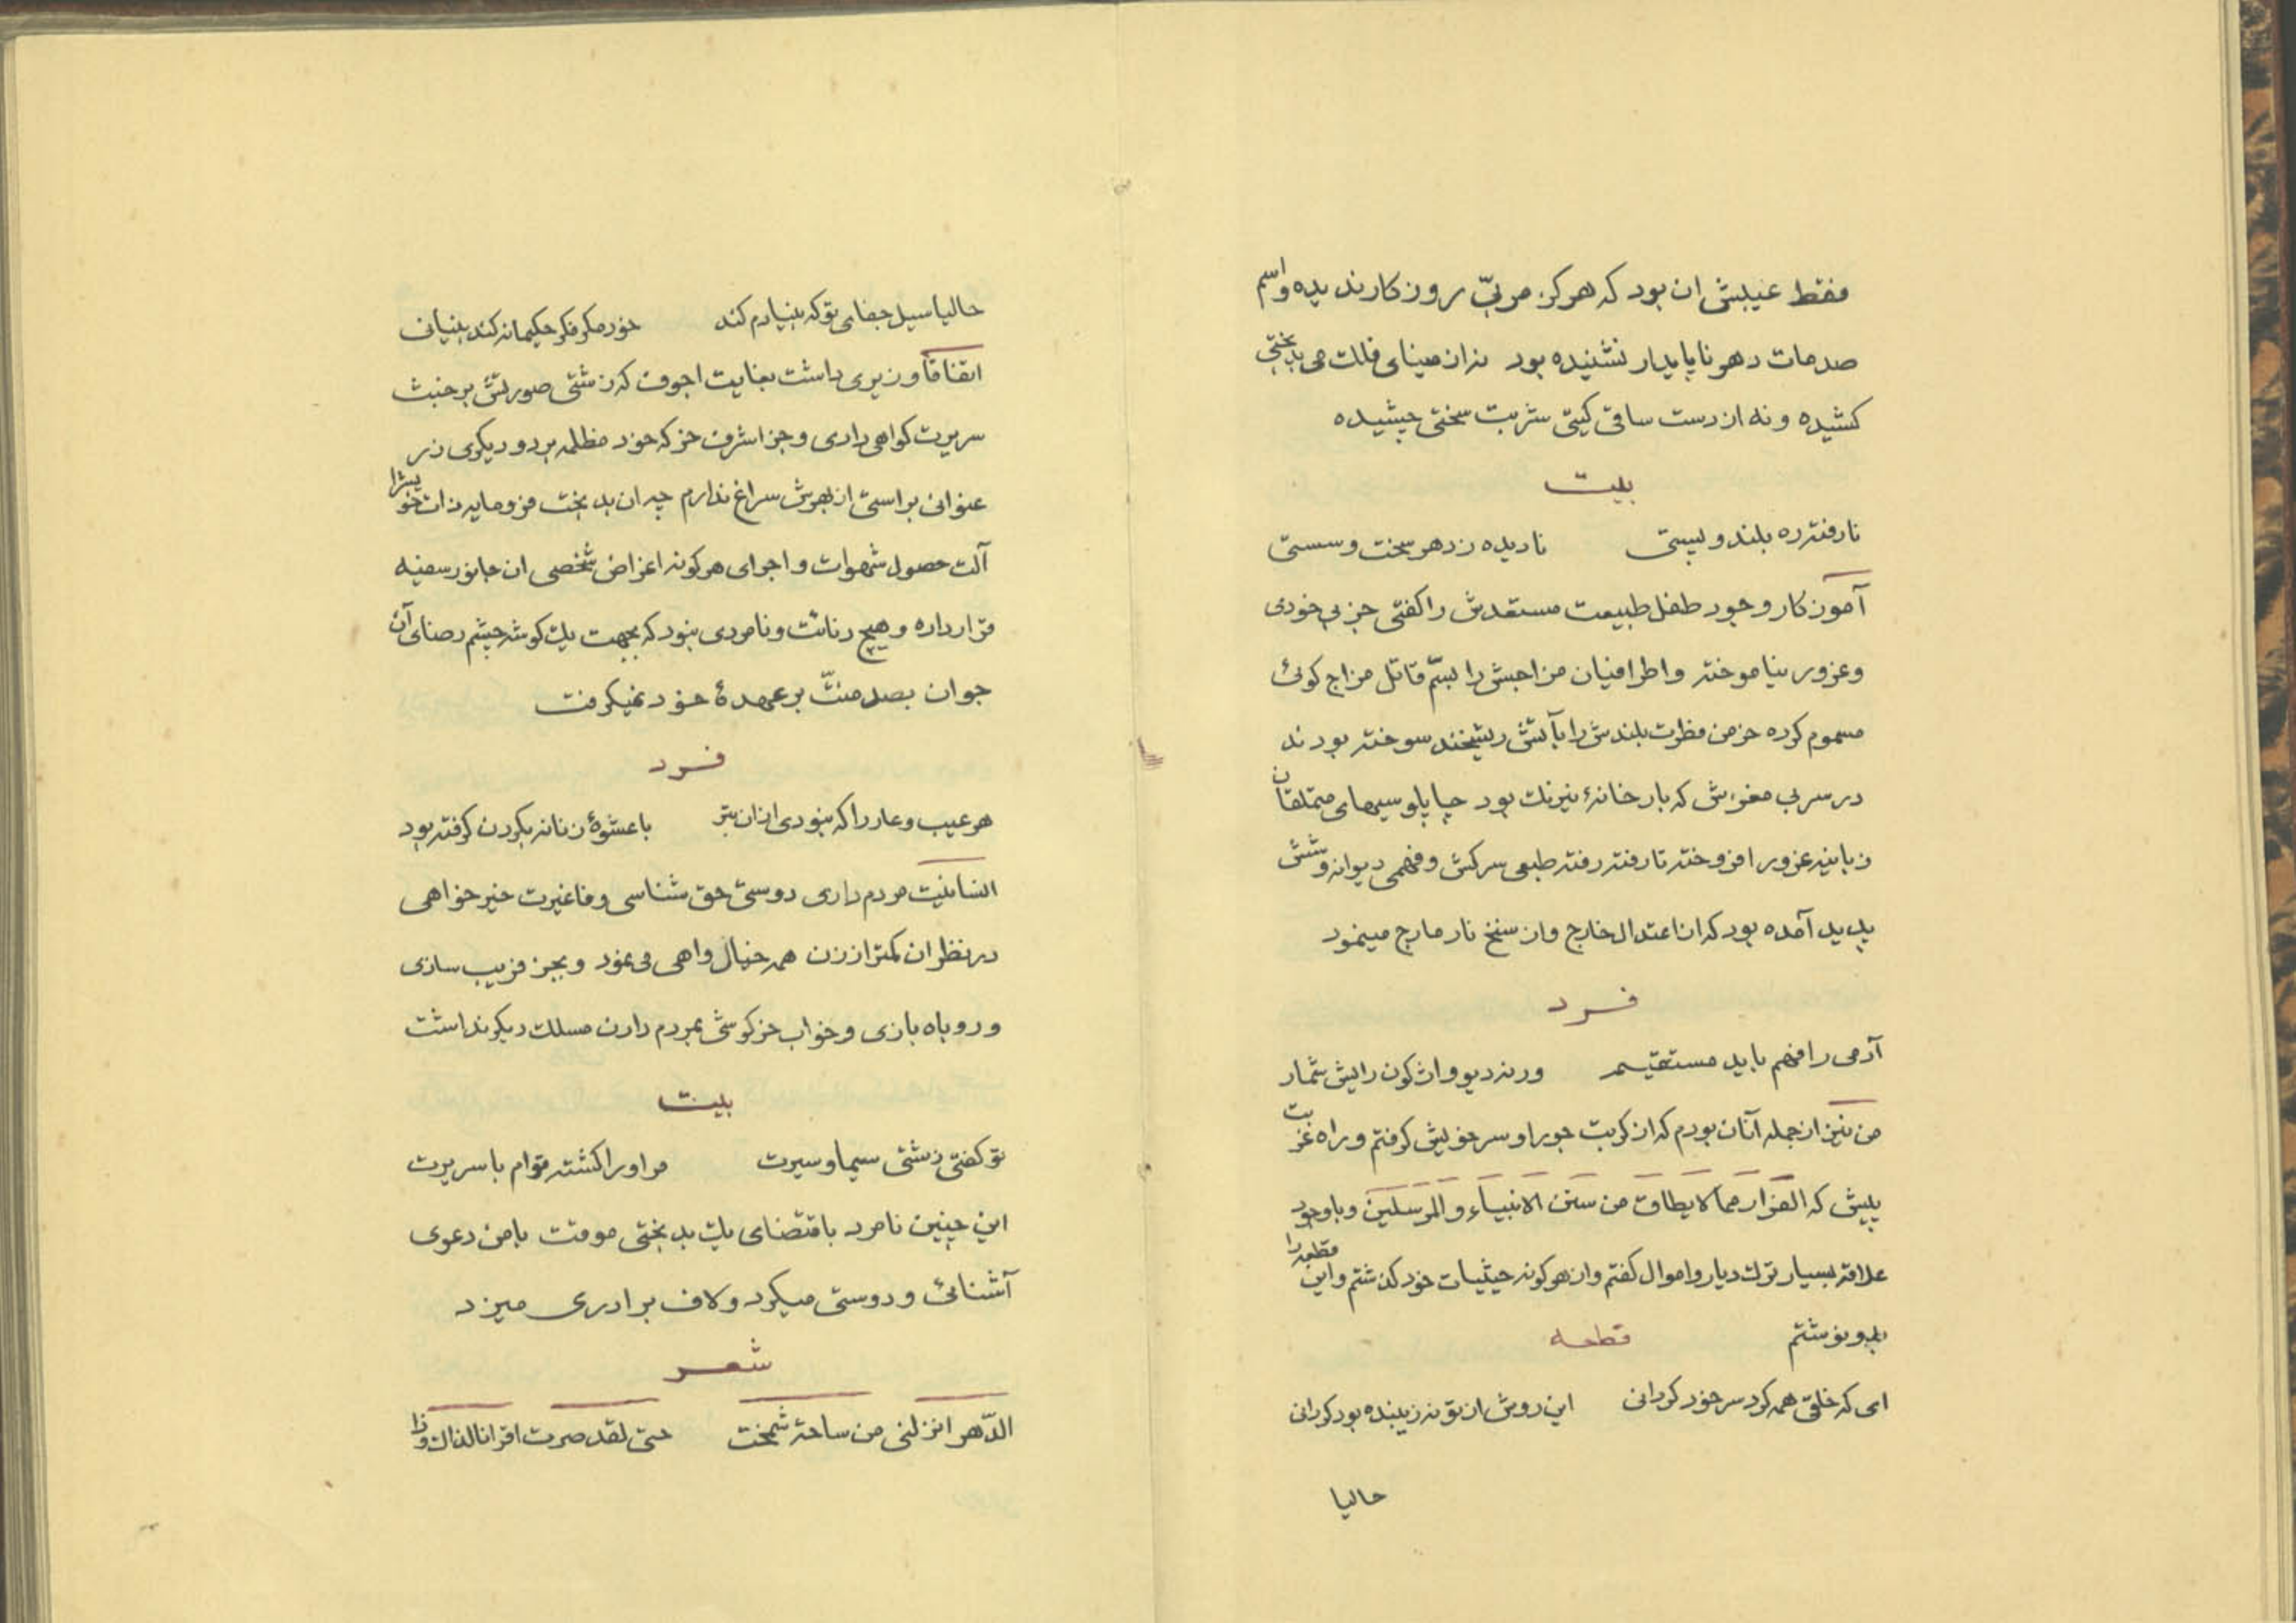 فقط عیبش ان بود که هرکز مربّی روزکار ندیده و اسم
صدمات دهر ناپایدار نشنیده بود نه از مینای فلک می بدبختی
کشیده و نه از دست ساقی کیتی شربت سختی چشیده
بیت
نارفته ره بلند و پستی نادیده ز دهر سخت و سستی
آموزکار وجود طفل طبیعت مستعدش را کفتی جز بی خودی
و غرور نیاموخته و اطرافیان مزاجش را بسمّ قاتل مزاج کوئی
مسموم کرده خرمن فطرت بلندش را بآتش ریشخند سوخته بودند
در سر بی مغزش که بارخانهٔ نیرنک بود چاپلوسیهای متملقان
زبانیه غرور افروخته تا رفته رفته طبعی سرکش و فهمی دیوانه وشش
پدید آمده بود که از اعتدال خارج و از سنخ نار مارج مینمود
فرد
آدمی را فهم باید مستقیم ورنه دیو واژکون رایش شمار
من نیز از جمله آنان بودم که از کربت جور او سر خویش کرفتم و راه غربت
پیش که الفرار مما لا یطاق من سنن الانبیاء و المرسلین و باوجود
علاقه بسیار ترک دیار و اموال کفتم و از هرکونه حیثیات خود کذشتم و این قطعه را
بدو نوشتم قطعه
ای که خلقی همه کرد سر خود کردانی این روش از تو نه زیبنده بود کردانی
حالیا
حالیا سیل جفای تو که بنیادم کند خود مکر فکر حکیمانه کند بنیانی
اتفاقاً وزیری داشت بغایت اجوف که زشتی صورتش بر خبث
سریرت کواهی دادی و جز اشرف خر که خود مظلمه برد و دیکری زر
عنوانی براستی از بهرش سراغ ندارم چه ان بد بخت فرومایه ذات خویشرا
آلت حصول شهوات و اجرای هرکونه اغراض شخصی ان جانور سفیه
قرار داره و هیچ دنائت و نامردی نبود که بجهت یک کوشه چشم رضای آن
جوان بصد منّت بر عهدهٔ خود نمیکرفت
فرد
هر عیب و عار را که نبودی ازان بتر با عشوهٔ زنانه بکردن کرفته بود
انسانیت مردم داری دوستی حق شناسی وفا غیرت خیر خواهی
در نظر ان کمتر از زن همه خیال واهی می نمود و بجز فریب سازی
و روباه بازی و خواب خرکوشی بمردم دادن مسلک دیکر نداشت
بیت
تو کفتی زشتی سیما و سیرت مر اورا کشته توام با سریرت
این چنین نامرد باقتضای یک بد بختی موقت بامن دعوی
آشنائی و دوستی میکرد و لاف برادری میزد
شعر
الدّهر انزلنی من ساحة شمخت حتی لقد صرت اقرانا لذاک وذا